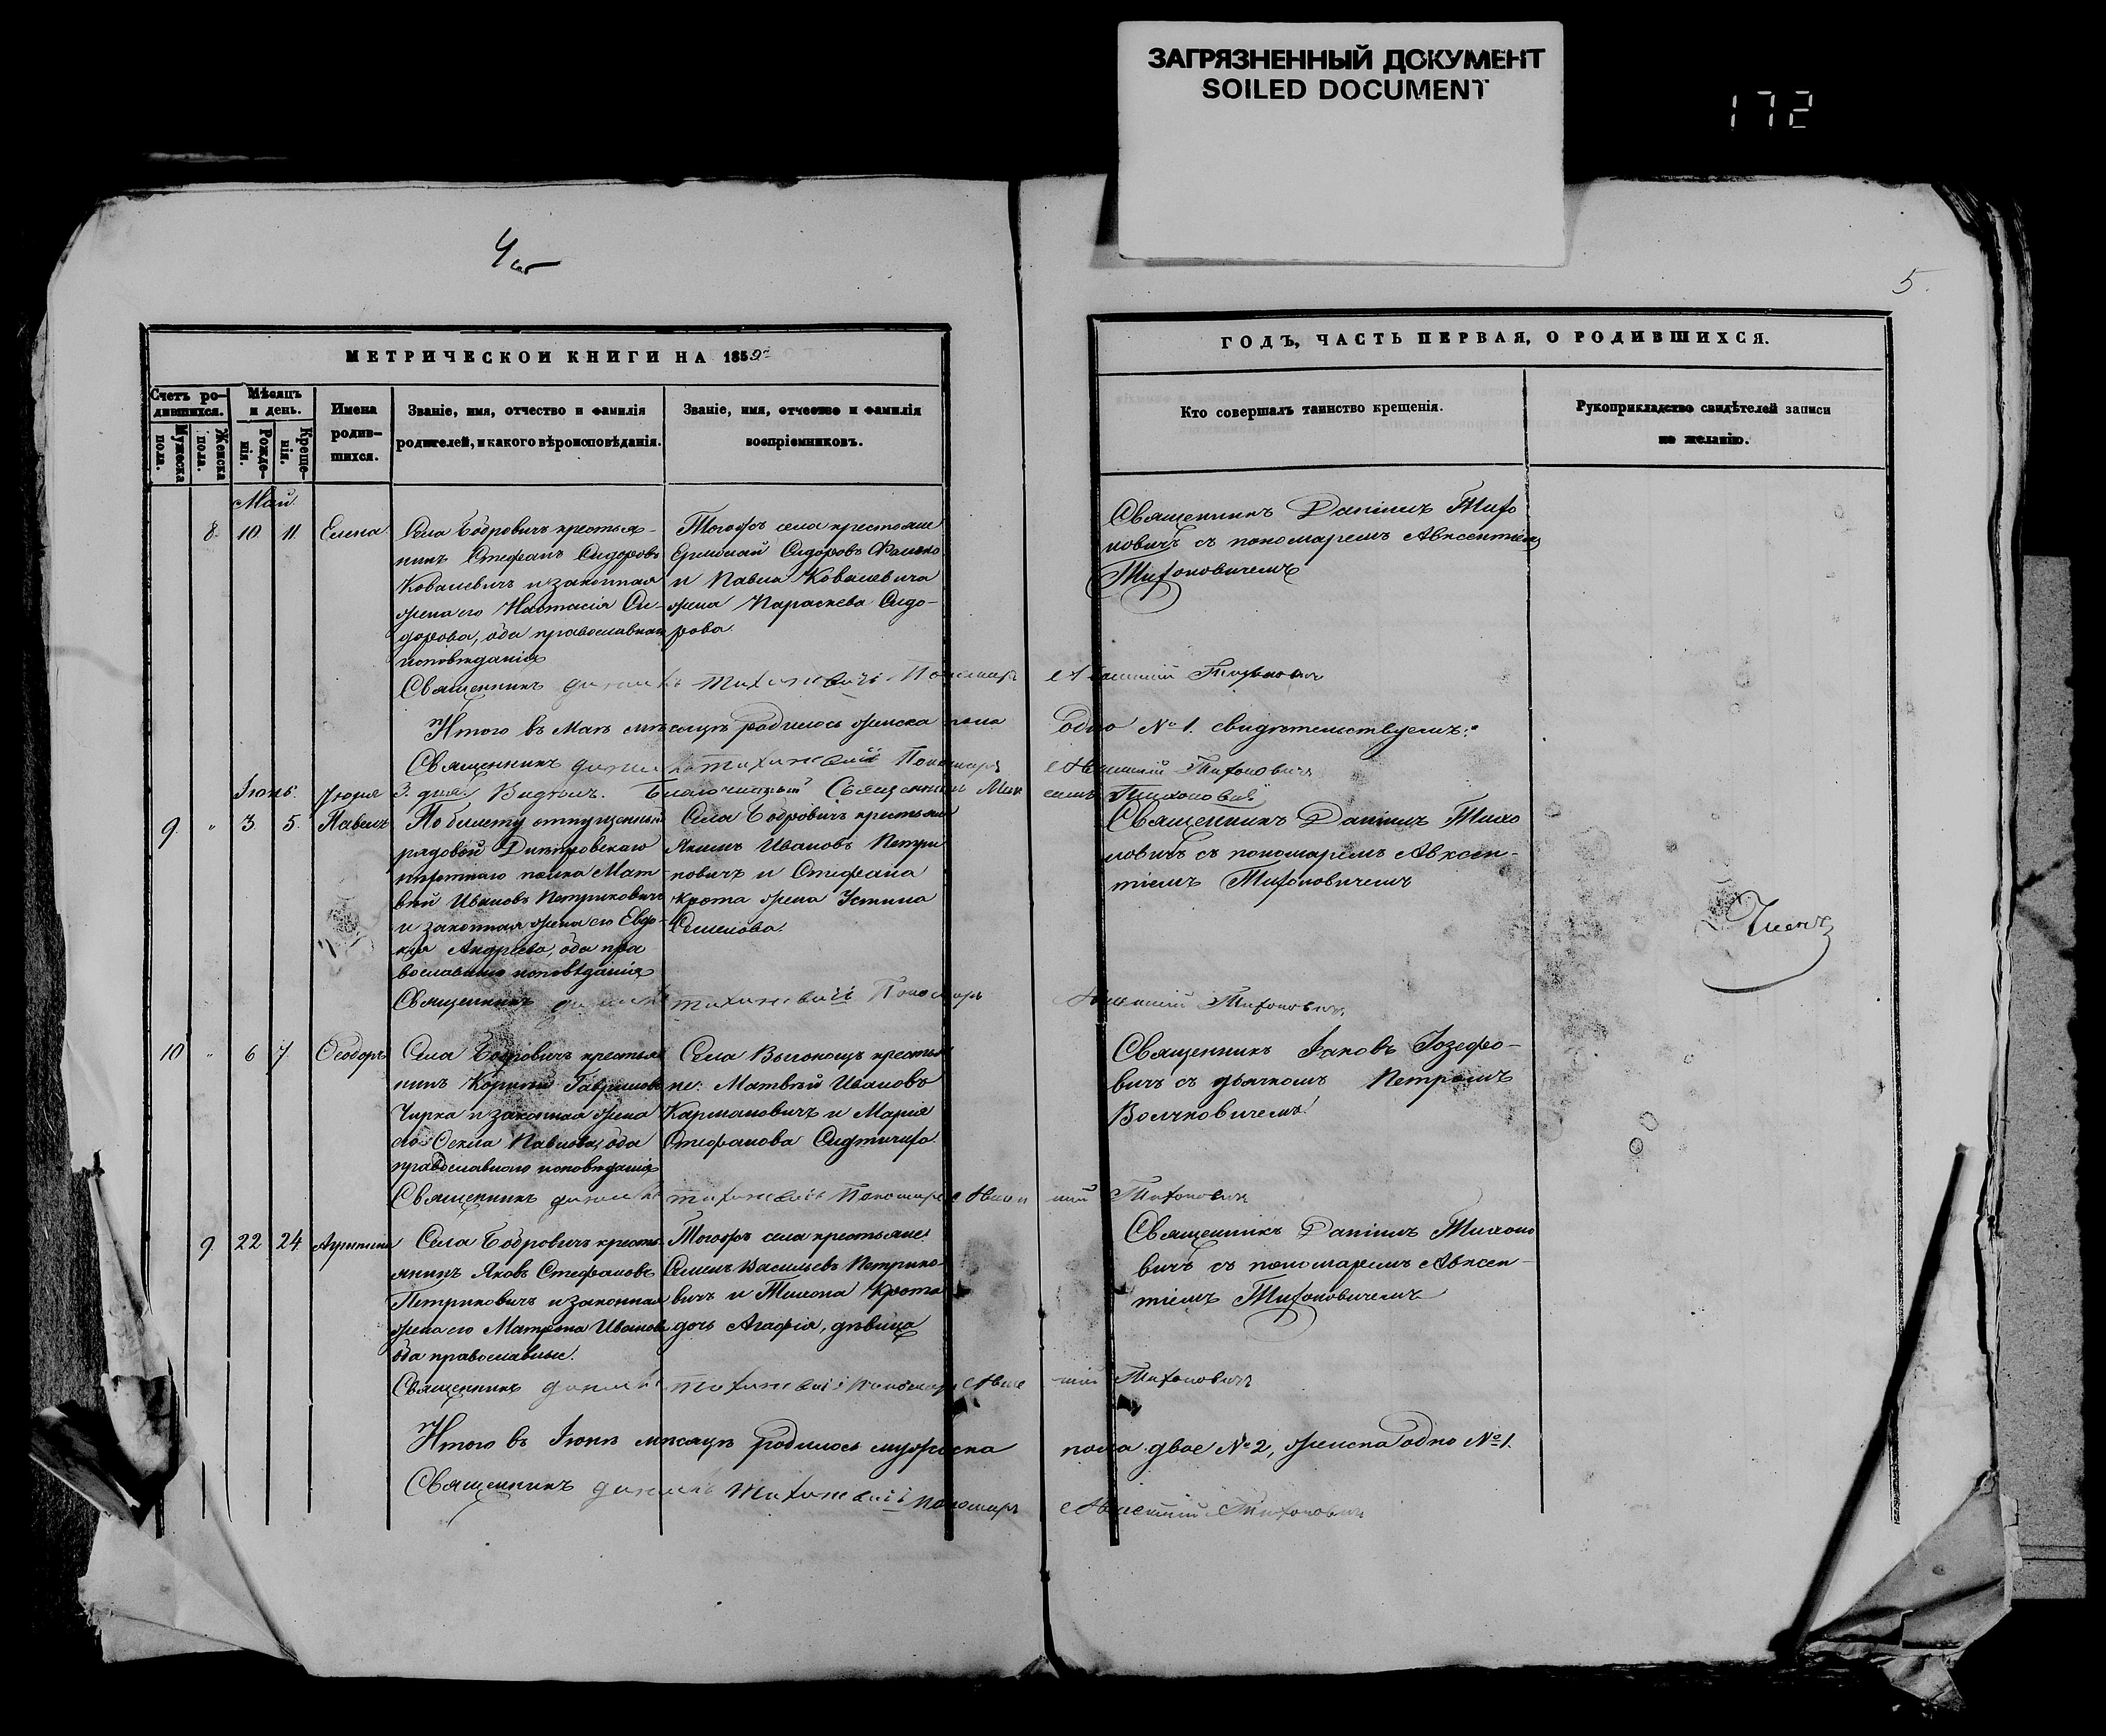 ЗАГРЯЗНЕННЫЙ ДОКУМЕНТ
SOILED DOCUMENT
172
4
5.
МЕТРИЧЕСКОЙ КНИГИ НА 1859
Счетъ ро-
дившихся.
Мѣсяцъ
и день.
Мужеска
пола.
Женска
пола.
Рожде-
нія.
Креще-
нія.
Имена
родив-
шихся.
Званіе, имя, отчество и фамилія
родителей, и какого вѣроисповѣданія.
Званіе, имя, отчество и фамилія
воспріемниковъ.
ГОДЪ, ЧАСТЬ ПЕРВАЯ, О РОДИВШИХСЯ.
Кто совершалъ таинство крещенія.
Рукоприкладство свидѣтелей записи
по желанію.
Май
8. 10 11 Елена
Села Бобровичъ крестья-
нинъ Стефанъ Сидоровъ
Ковалевичъ и законная
жена его Настасія Си-
дорова, оба православнаго
исповѣданія
Тогожъ села крестьяне
Сидоровъ
и Павла Ковалевича
жена Параскева Сидо-
рова.
Священникъ Даніилъ Тихо
новичъ съ пономаремъ Авксентіемъ
Тихоновичемъ
Священникъ Даніилъ Тихоновичъ Пономарь Авксентій Тихоновичъ
Итого въ Маѣ мѣсяцѣ родилось женска пола одно № 1. свидѣтельствуемъ:
Священникъ Даніилъ Тихоновичъ Пономарь Авксентій Тихоновичъ
Іюнь.
3. дня Видѣлъ. Благочинный Священникъ
9. " 3. 5. Павелъ
По билету отпущенный
рядовой Днѣпровскаго
пѣхотнаго полка Мат-
вій Ивановъ Петриковичъ
и законная жена его Евдо-
кія Андреева, оба пра
вославнаго исповѣданія
Села Бобровичъ крестьяне
Ивановъ Петри
ковичъ и Стефана
Крота жена Устина
Семенова.
Священникъ Даніилъ Тихо
новичъ съ пономаремъ Авксен-
тіемъ Тихоновичемъ
Членъ
Священникъ Даніилъ Тихоновичъ Пономарь Авксентій Тихоновичъ
10 " 6 7 Ѳеодоръ
Села Бобровичъ крестья
нинъ Гавриловъ
Чирка и законная жена
его Павлова, оба
православнаго исповѣданія
Села Выгонощъ крестья
не: Матвѣй Ивановъ
Кармановичъ и Марія
Стефанова
Священникъ Іаковъ Іозефо-
вичъ съ дьячкомъ Петромъ
Волчковичемъ.
Священникъ Даніилъ Тихоновичъ Пономарь Авксентій Тихоновичъ
9 22 24 Агрипина
Села Бобровичъ кресть
янинъ Яковъ Стефановъ
Петриковичъ и законная
жена его Матрона Иванова
оба православные.
Тогожъ села крестьяне:
Семенъ Васильевъ Петрико-
вичъ и Тихона Крота
дочь Агафія, дѣвица
Священникъ Даніилъ Тихоно
вичъ съ пономаремъ Авксен-
тіемъ Тихоновичемъ
Священникъ Даніилъ Тихоновичъ Пономарь Авксентій Тихоновичъ
Итого въ Іюнѣ мѣсяцѣ родилось мужеска пола двое № 2, женска одно № 1.
Священникъ Даніилъ Тихоновичъ Пономарь Авксентій Тихоновичъ